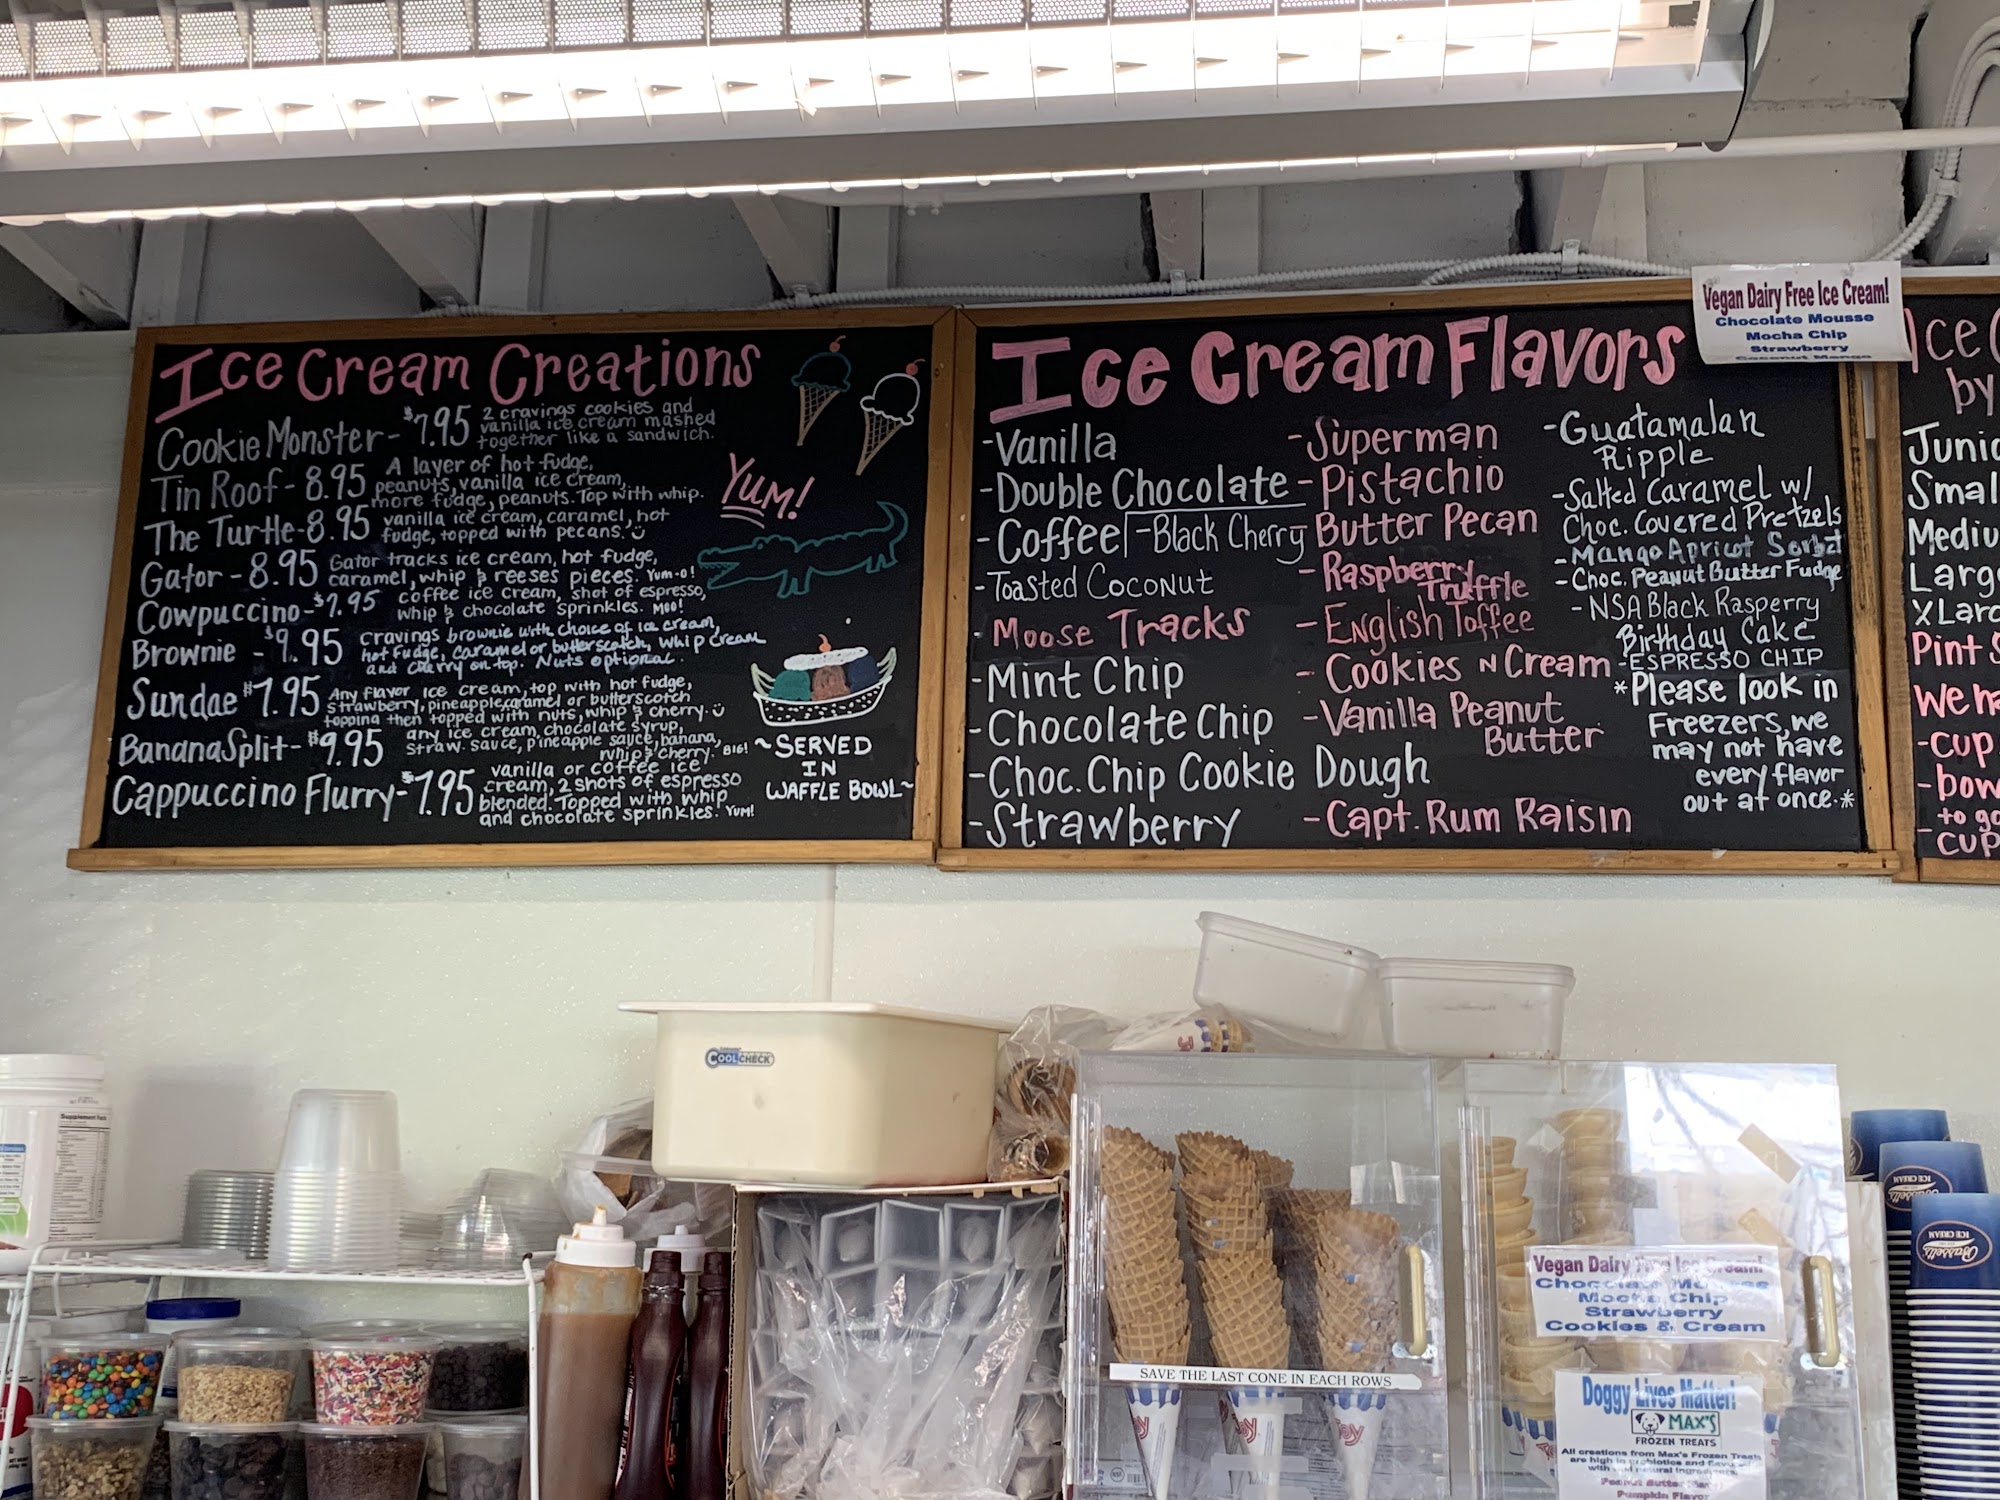 Ice Cream Creations
Cookie Monster - $7.95 2 cravings cookies and
vanilla ice cream mashed
together like a sandwich.
Tin Roof - 8.95 A layer of hot fudge,
peanuts, vanilla ice cream,
more fudge, peanuts. Top with whip.
The Turtle - 8.95 vanilla ice cream, caramel, hot
fudge, topped with pecans.
Gator - 8.95 Gator tracks ice cream, hot fudge,
caramel, whip & reeses pieces. Yum-o!
Cowpuccino - $7.95 coffee ice cream, shot of espresso,
whip & chocolate sprinkles. Moo!
Brownie - $9.95 cravings brownie with choice of ice cream,
hot fudge, caramel or butterscotch, whip cream
and cherry on top. Nuts optional.
Sundae $7.95 Any flavor ice cream, top with hot fudge,
strawberry, pineapple, caramel or butterscotch
topping then topped with nuts, whip & cherry.
Banana Split - $9.95 any ice cream, chocolate syrup,
straw. sauce, pineapple sauce, banana,
whip & cherry. BIG!
Cappuccino Flurry - $7.95 vanilla or coffee ice
cream, 2 shots of espresso
blended. Topped with whip
and chocolate sprinkles. YUM!
YUM!
~SERVED
IN
WAFFLE BOWL~
Ice Cream Flavors
-Vanilla
-Double Chocolate
-Coffee -Black Cherry
-Toasted Coconut
-Moose Tracks
-Mint Chip
-Chocolate Chip
-Choc. Chip Cookie Dough
-Strawberry
-Superman
-Pistachio
Butter Pecan
-Raspberry
Truffle
-English Toffee
-Cookies N Cream
-Vanilla Peanut
Butter
-Capt. Rum Raisin
-Guatamalan
Ripple
-Salted Caramel w/
Choc. Covered Pretzels
-Mango Apricot Sorbet
-Choc. Peanut Butter Fudge
-NSA Black Rasperry
Birthday Cake
-ESPRESSO CHIP
*Please look in
Freezers, we
may not have
every flavor
out at once.*
Vegan Dairy Free Ice Cream!
Chocolate Mousse
Mocha Chip
Strawberry
Coconut Mango
Ice C
by
Junio
Small
Mediu
Larg
XLarg
Pint S
We ha
-cup
-bow
-to go
cup
COOLCHECK
Supplement Facts
SAVE THE LAST CONE IN EACH ROWS
Joy
Vegan Dairy Free Ice Cream!
Chocolate Mousse
Mocha Chip
Strawberry
Cookies & Cream
Doggy Lives Matter!
MAX'S
FROZEN TREATS
All creations from Max's Frozen Treats
are high in probiotics and flavored
with real natural ingredients.
Peanut Butter
Pumpkin Flavor
Bassetts
ICE CREAM
Bassetts
ICE CREAM